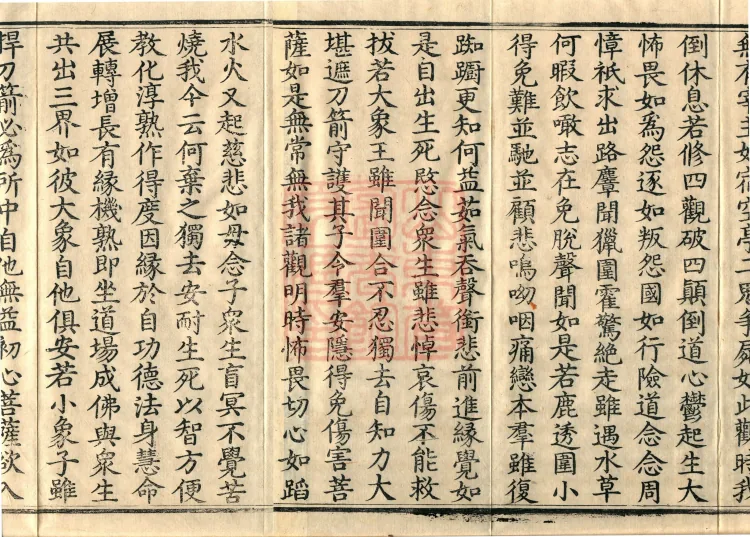 如宿空亭二界等屍如此觀時我
倒休息若修四觀破四顛倒道心鬱起生大
怖畏如爲怨逐如叛怨國如行險道念念周
慞秖求出路麞聞獵圍霍驚絕走雖遇水草
何暇飲噉志在免脫聲聞如是若鹿透圍小
得免難並馳並顧悲鳴呦咽痛戀本羣雖復
踟躕更知何益茹氣吞聲銜悲前進緣覺如
是自出生死愍念眾生雖悲悼哀傷不能救
拔若大象王雖聞圍合不忍獨去自知力大
堪遮刀箭守護其子令羣安隱得免傷害菩
薩如是無常無我諸觀明時怖畏切心如蹈
水火又起慈悲如母念子眾生盲冥不覺苦
燒我今云何棄之獨去安耐生死以智方便
教化淳熟作得度因緣於自功德法身慧命
展轉增長有緣機熟即坐道場成佛與眾生
共出三界如彼大象自他俱安若小象子雖
捍刀箭必爲所中自他無益初心菩薩欲入